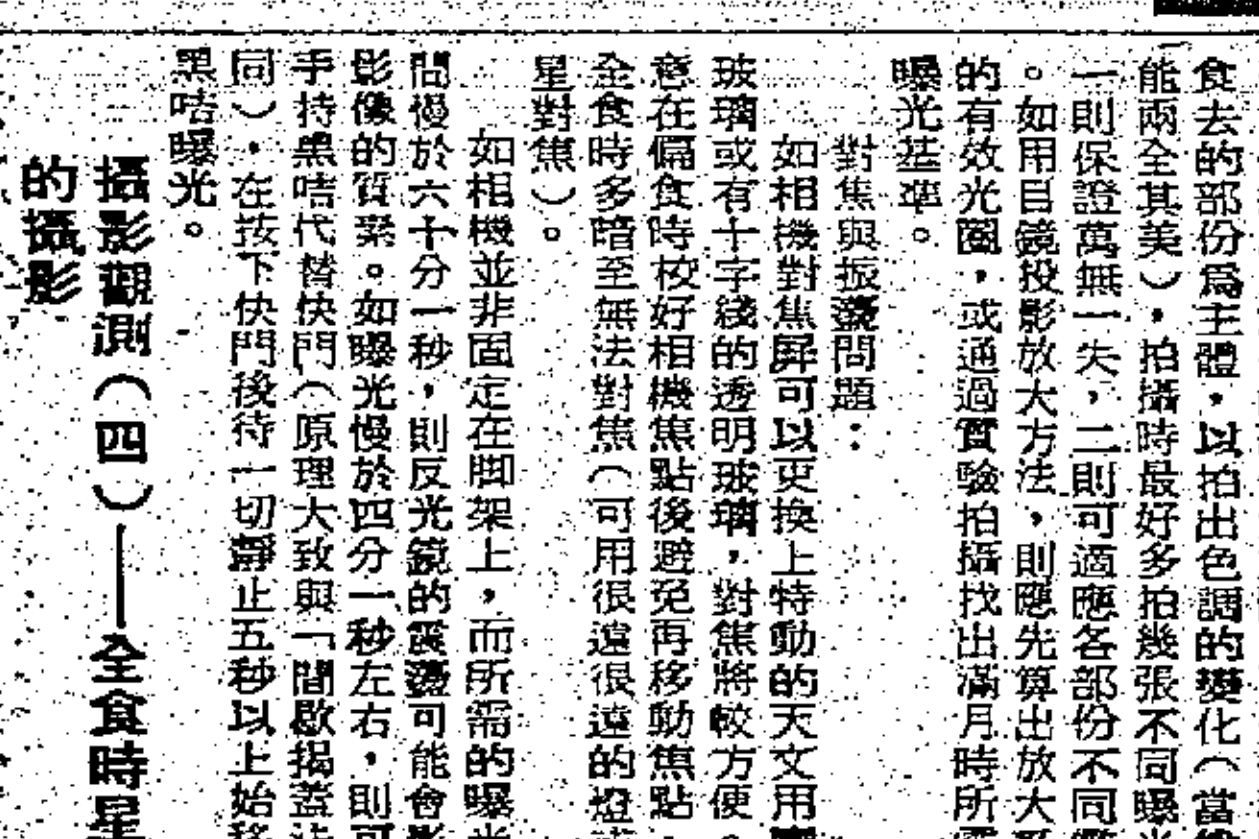 食去的部份為主體，以拍出色調的變化（當
能兩全其美），拍攝時最好多拍幾張不同曝
一則保證萬無一失，二則可適應各部份不同
。如用目鏡投影放大方法，則應先算出放大
的有效光圈，或通過實驗拍攝找出滿月時所
曝光基準。
對焦與振盪問題：
如相機對焦屏可以更換上特動的天文用
玻璃或有十字綫的透明玻璃，對焦將較方便。
意在偏食時校好相機焦點後避免再移動焦點，
全食時多暗至無法對焦（可用很遠很遠的燈
星對焦）。
如相機並非固定在脚架上，而所需的曝光
間慢於六十分一秒，則反光鏡的震盪可能會影
影像的質素。如曝光慢於四分一秒左右，則可
手持黑咭代替快門（原理大致與「間歇揭蓋
同），在按下快門後待一切靜止五秒以上始移
黑咭曝光。
攝影觀測（四）——全食時星
的攝影